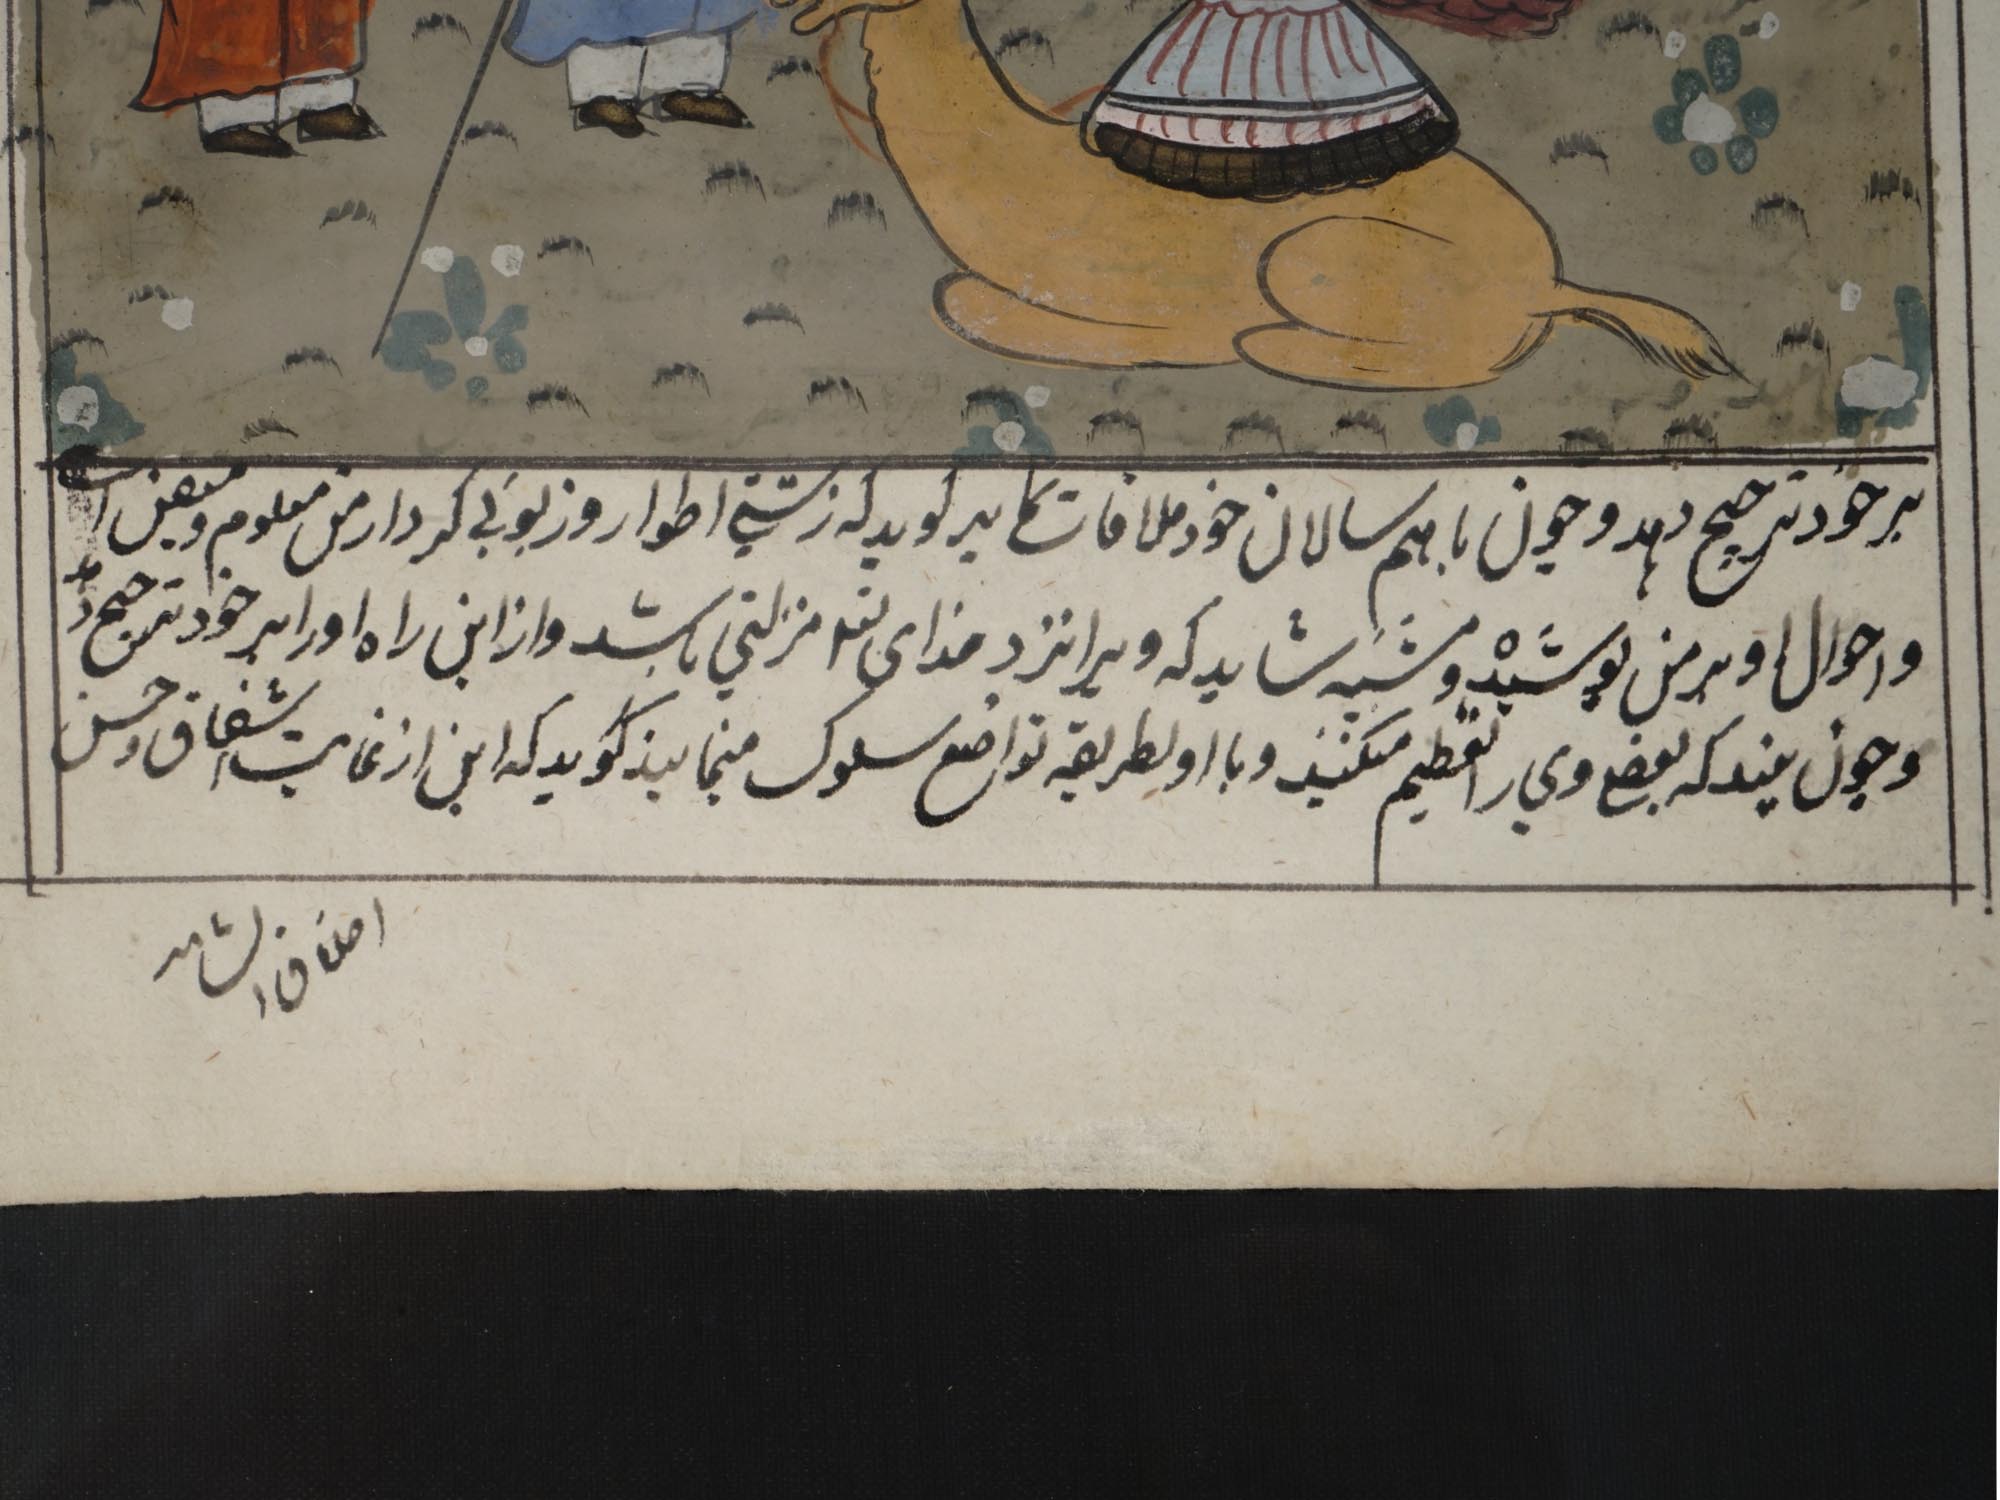 بر خود ترجیح دهد و چون با هم سالان خود ملاقات نماید کوید که زشتی اطوار و زبونی کردار من معلوم و متیقن است
و احوال او بر من پوشیده و مشتبه شاید که ویرا نزد خدای تعالی منزلتی باشد و از این راه او را بر خود ترجیح دهد
و چون بیند که بعضی وی را تعظیم میکنند و با او بطریقه تواضع سلوک مینمایند کوید که این از غایت اشفاق و حسن
اخلاق ایشانست